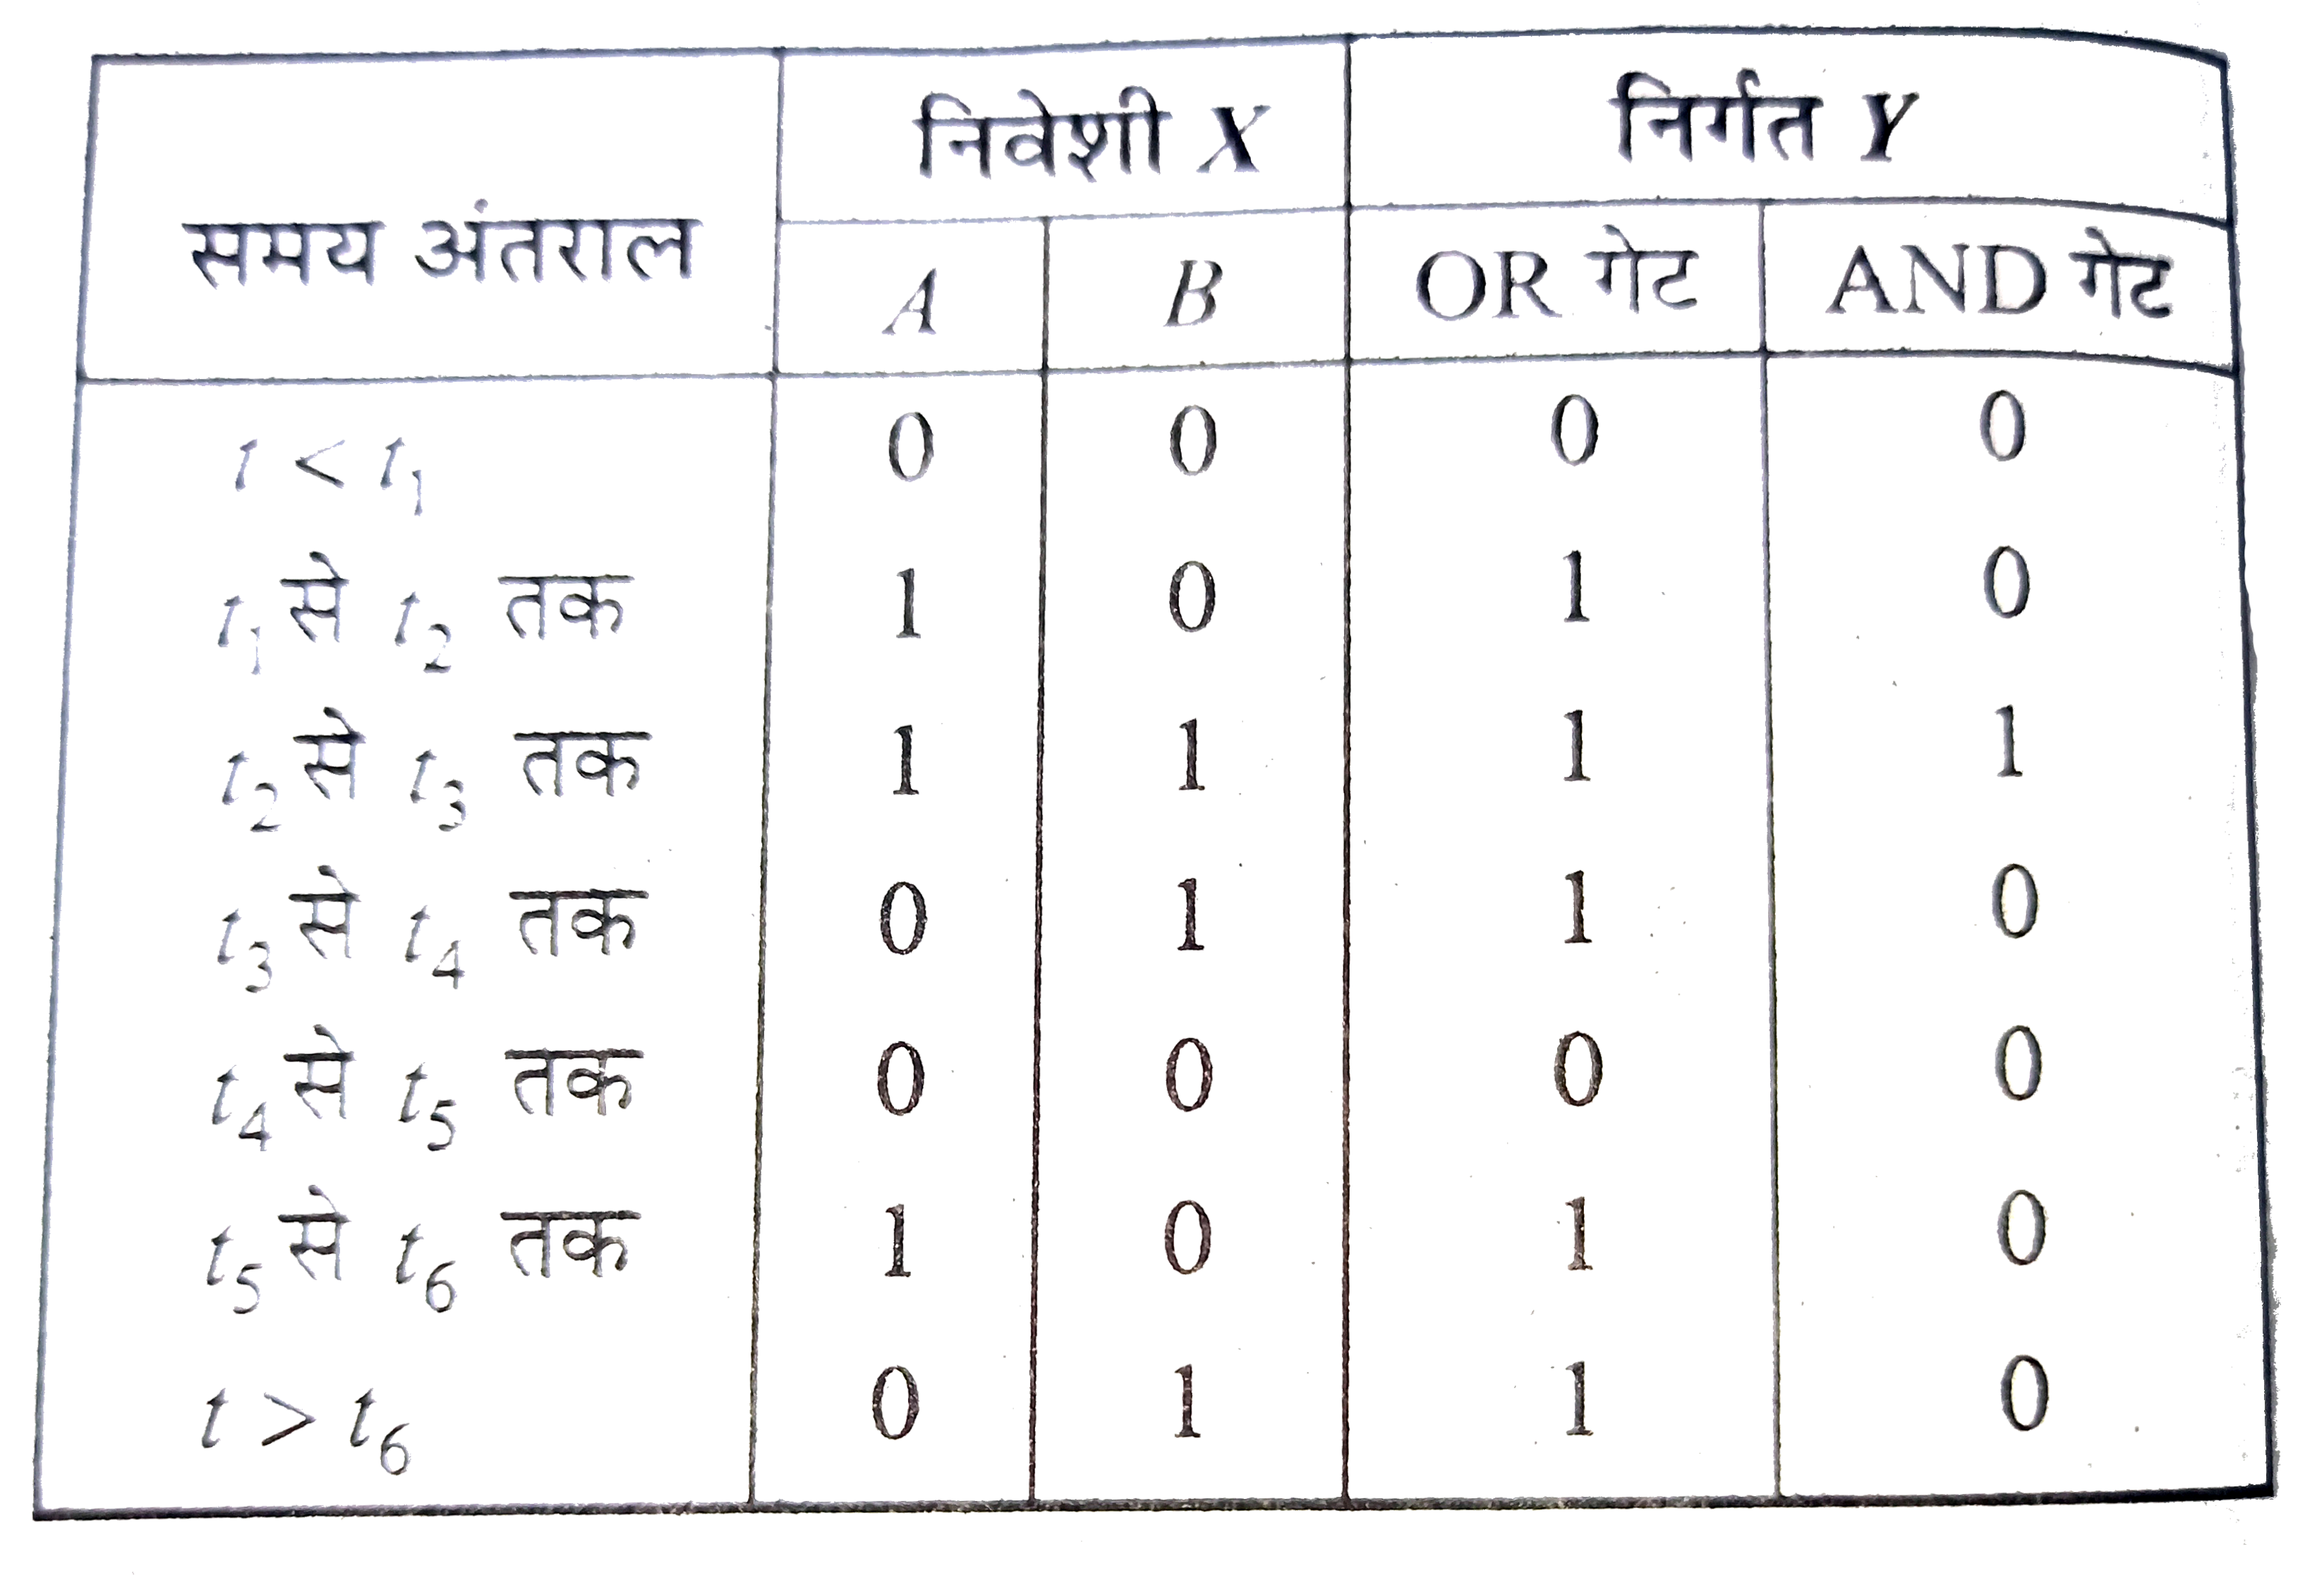 समय अंतराल निवेशी X निर्गत Y
A B OR गेट AND गेट
t < t₁ 0 0 0 0
t₁ से t₂ तक 1 0 1 0
t₂ से t₃ तक 1 1 1 1
t₃ से t₄ तक 0 1 1 0
t₄ से t₅ तक 0 0 0 0
t₅ से t₆ तक 1 0 1 0
t > t₆ 0 1 1 0